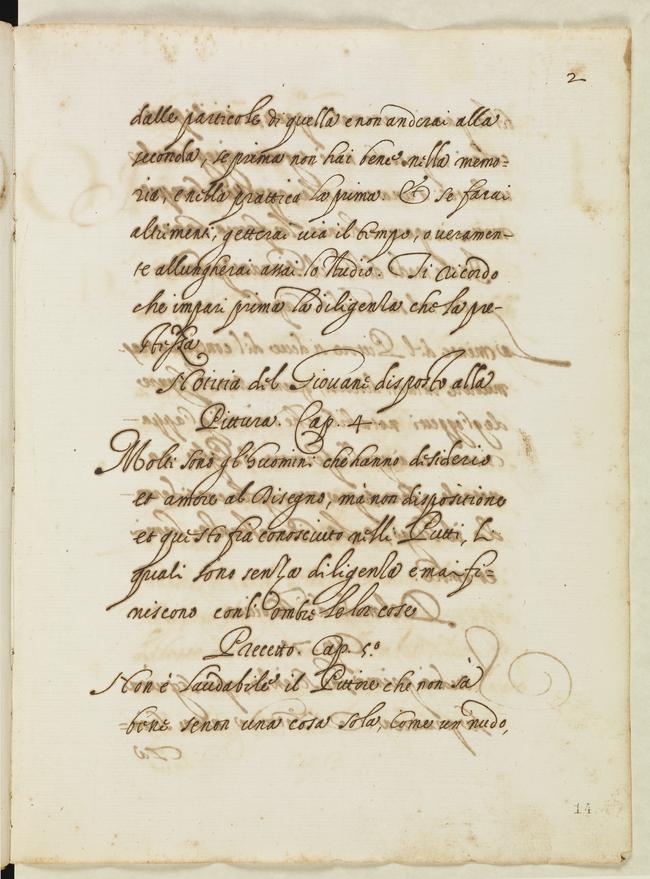 2
dalle particole di quella e non anderai alla
seconda, se prima non hai bene nella memo=
ria, e nella prattica la prima. Et se farai
altrimenti, getterai via il tempo, o veramen=
te allungherai assai lo studio. Ti ricordo
che impari prima la diligenza che la pre=
stezza
Notitia del Giovane disposto alla
Pittura. Cap. 4
Molti sono gl'huomini che hanno desiderio
et amore al Disegno, mà non dispositione
et questo fia conosciuto nelli Putti, li
quali sono senza diligenza e mai fi=
niscono con l'ombre le lor cose
Precetto. Cap. 5.º
Non è laudabile il Pittore che non fà
bene senon una cosa sola, come un nudo,
14